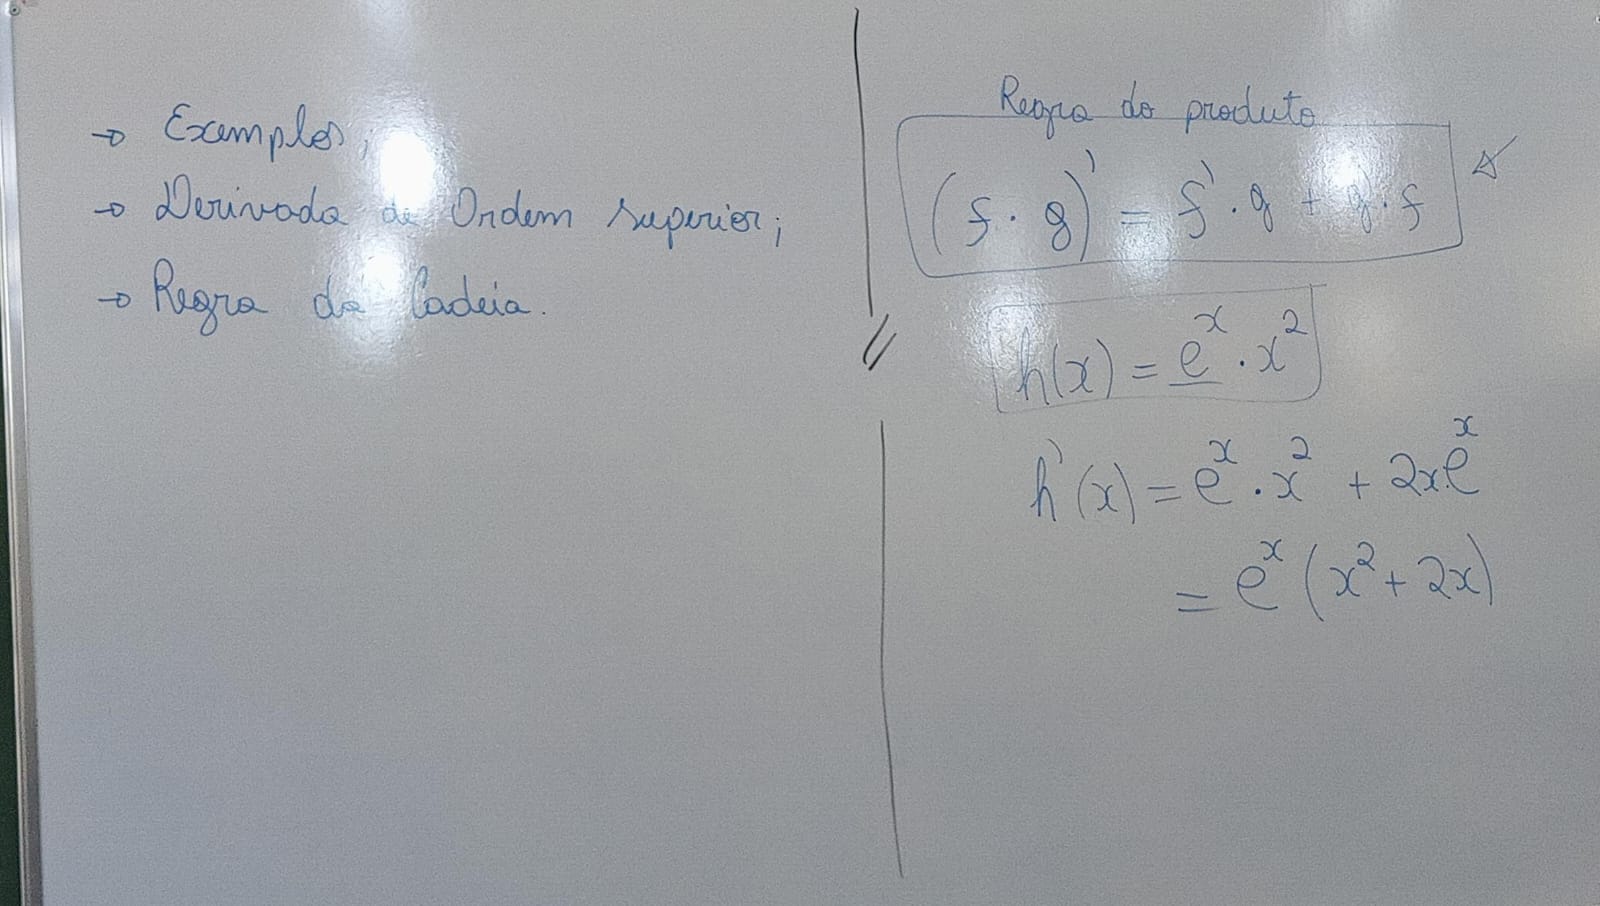 → Exemplos;
→ Derivada de Ordem superior;
→ Regra da Cadeia.
Regra do produto
(f · g)' = f' · g + g' · f
h(x) = e^x · x^2
h'(x) = e^x · x^2 + 2x e^x
= e^x (x^2 + 2x)